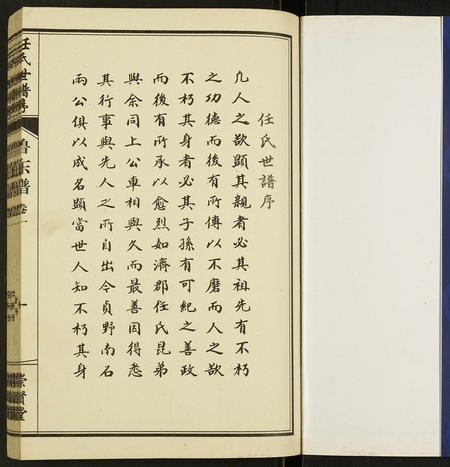 任氏世譜序
凡人之欲顯其親者必其祖先有不朽
之功德而後有所傳以不磨而人之欲
不朽其身者必其子孫有可紀之善政
而後有所承以愈烈如濟郡任氏昆弟
與余同上公車相與久而最善因得悉
其行事與先人之所自出今貞野南石
兩公俱以成名顯當世人知不朽其身
任氏世譜序
魯東譜
卷一
一
崇賢堂